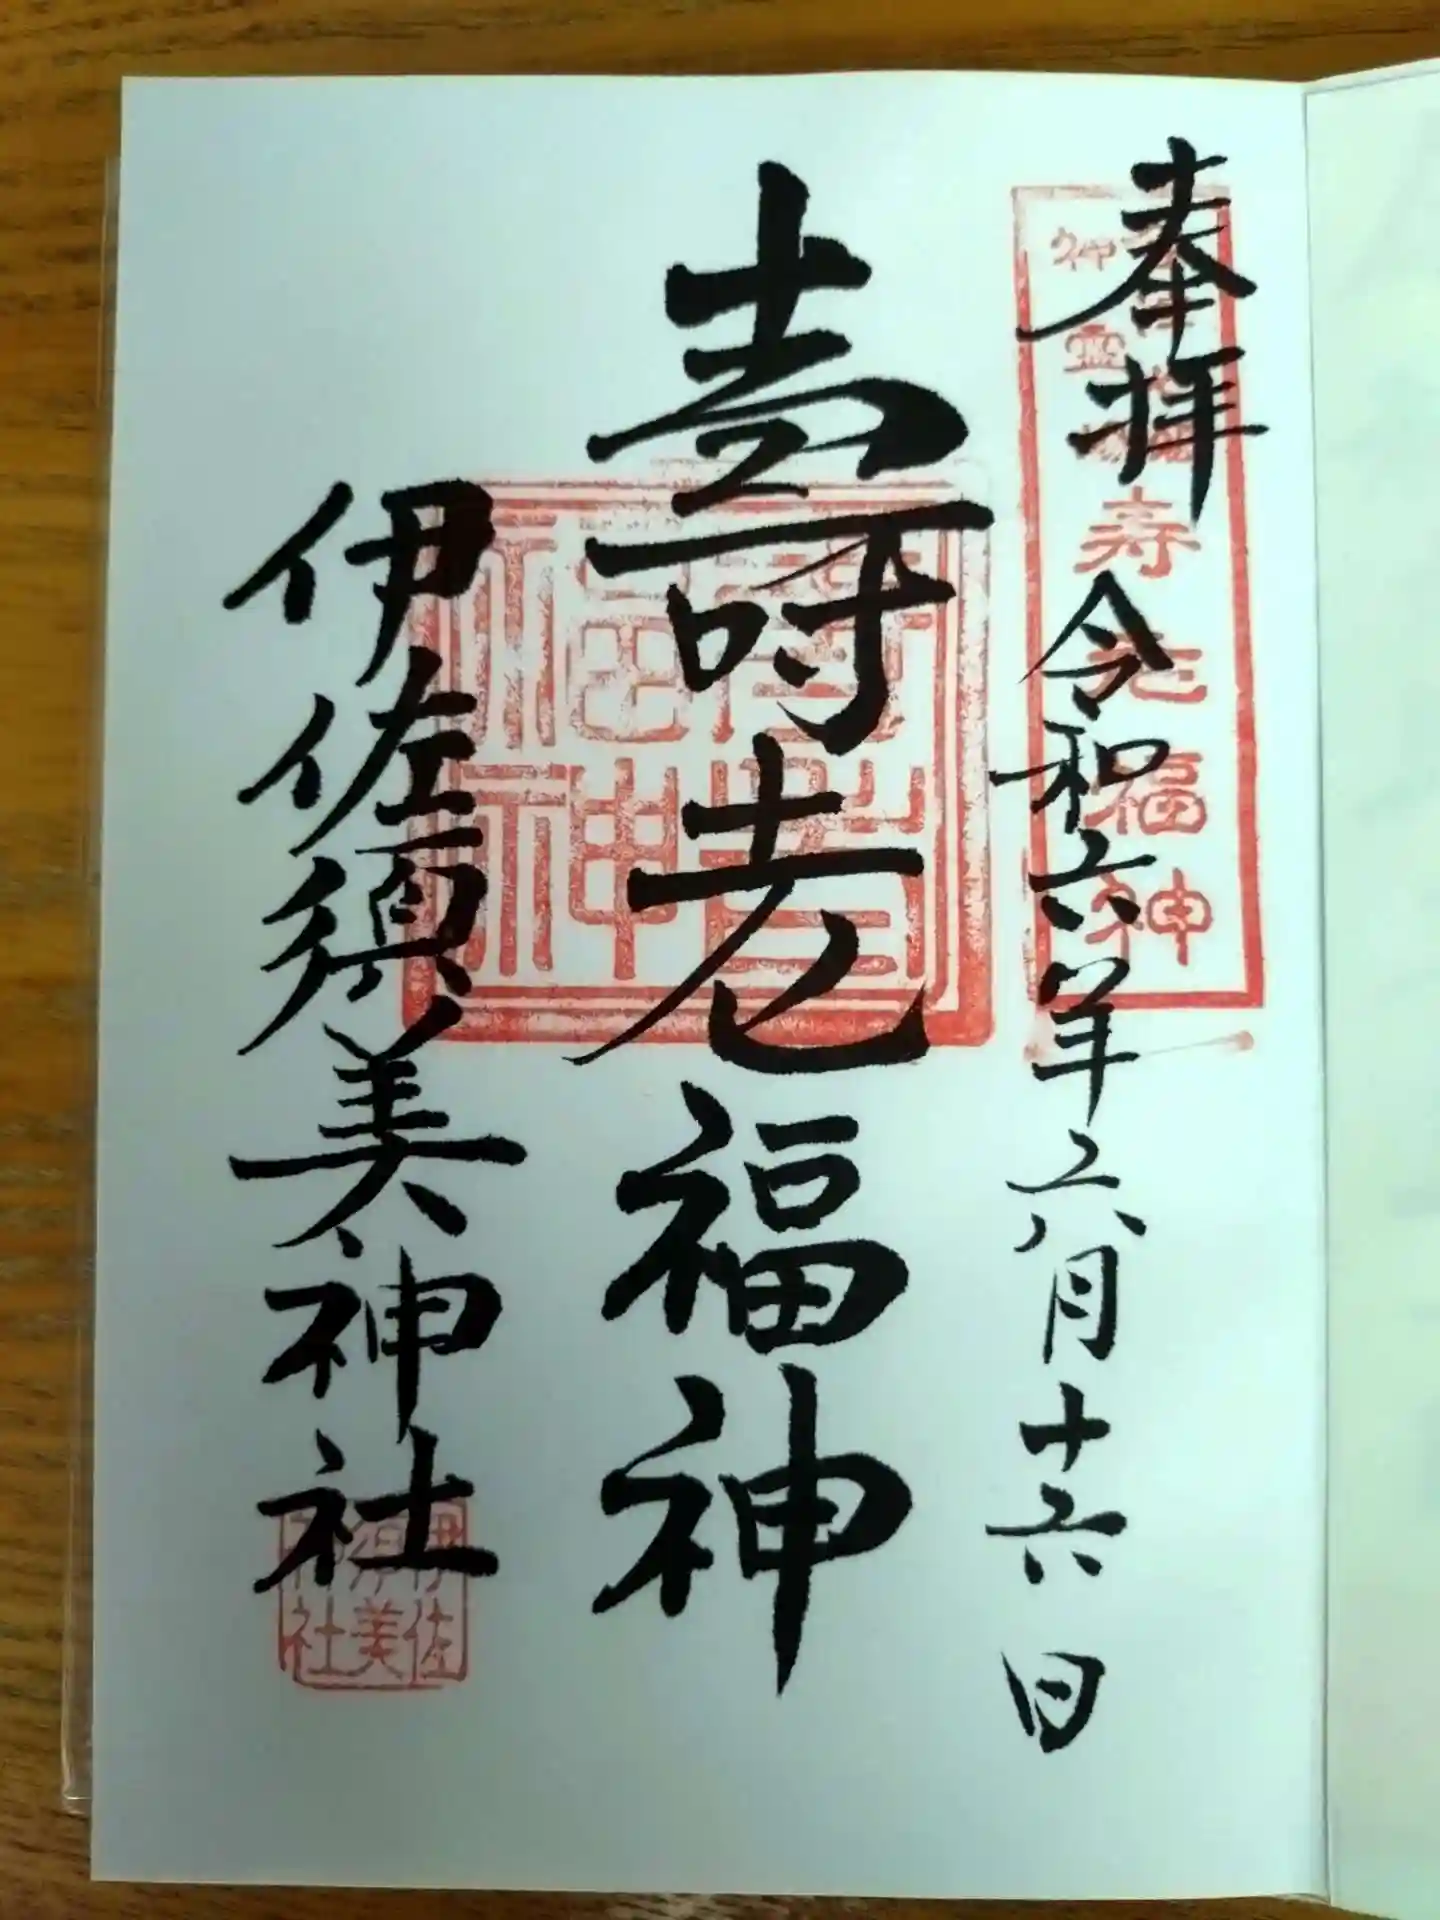 奉拝
令和六年六月十六日
壽老福神
伊佐須美神社
寿老福神
寿老福神
伊佐
須美
神社